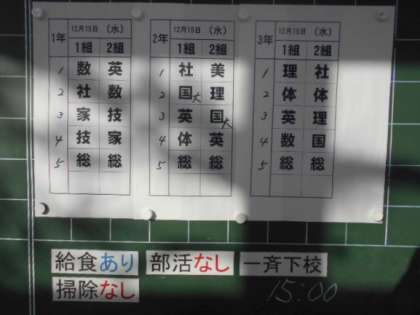 1年 12月15日 (水)
1組 2組
1 数 英
2 社 数
3 家 技
4 技 家
5 総 総
2年 12月15日 (水)
1組 2組
1 社 美
2 国大 理
3 英 国大
4 体 英
5 総 総
3年 12月15日 (水)
1組 2組
1 理 社
2 体 体
3 英 理
4 数 国
5 総 総
給食あり 部活なし 一斉下校
掃除なし 15:00